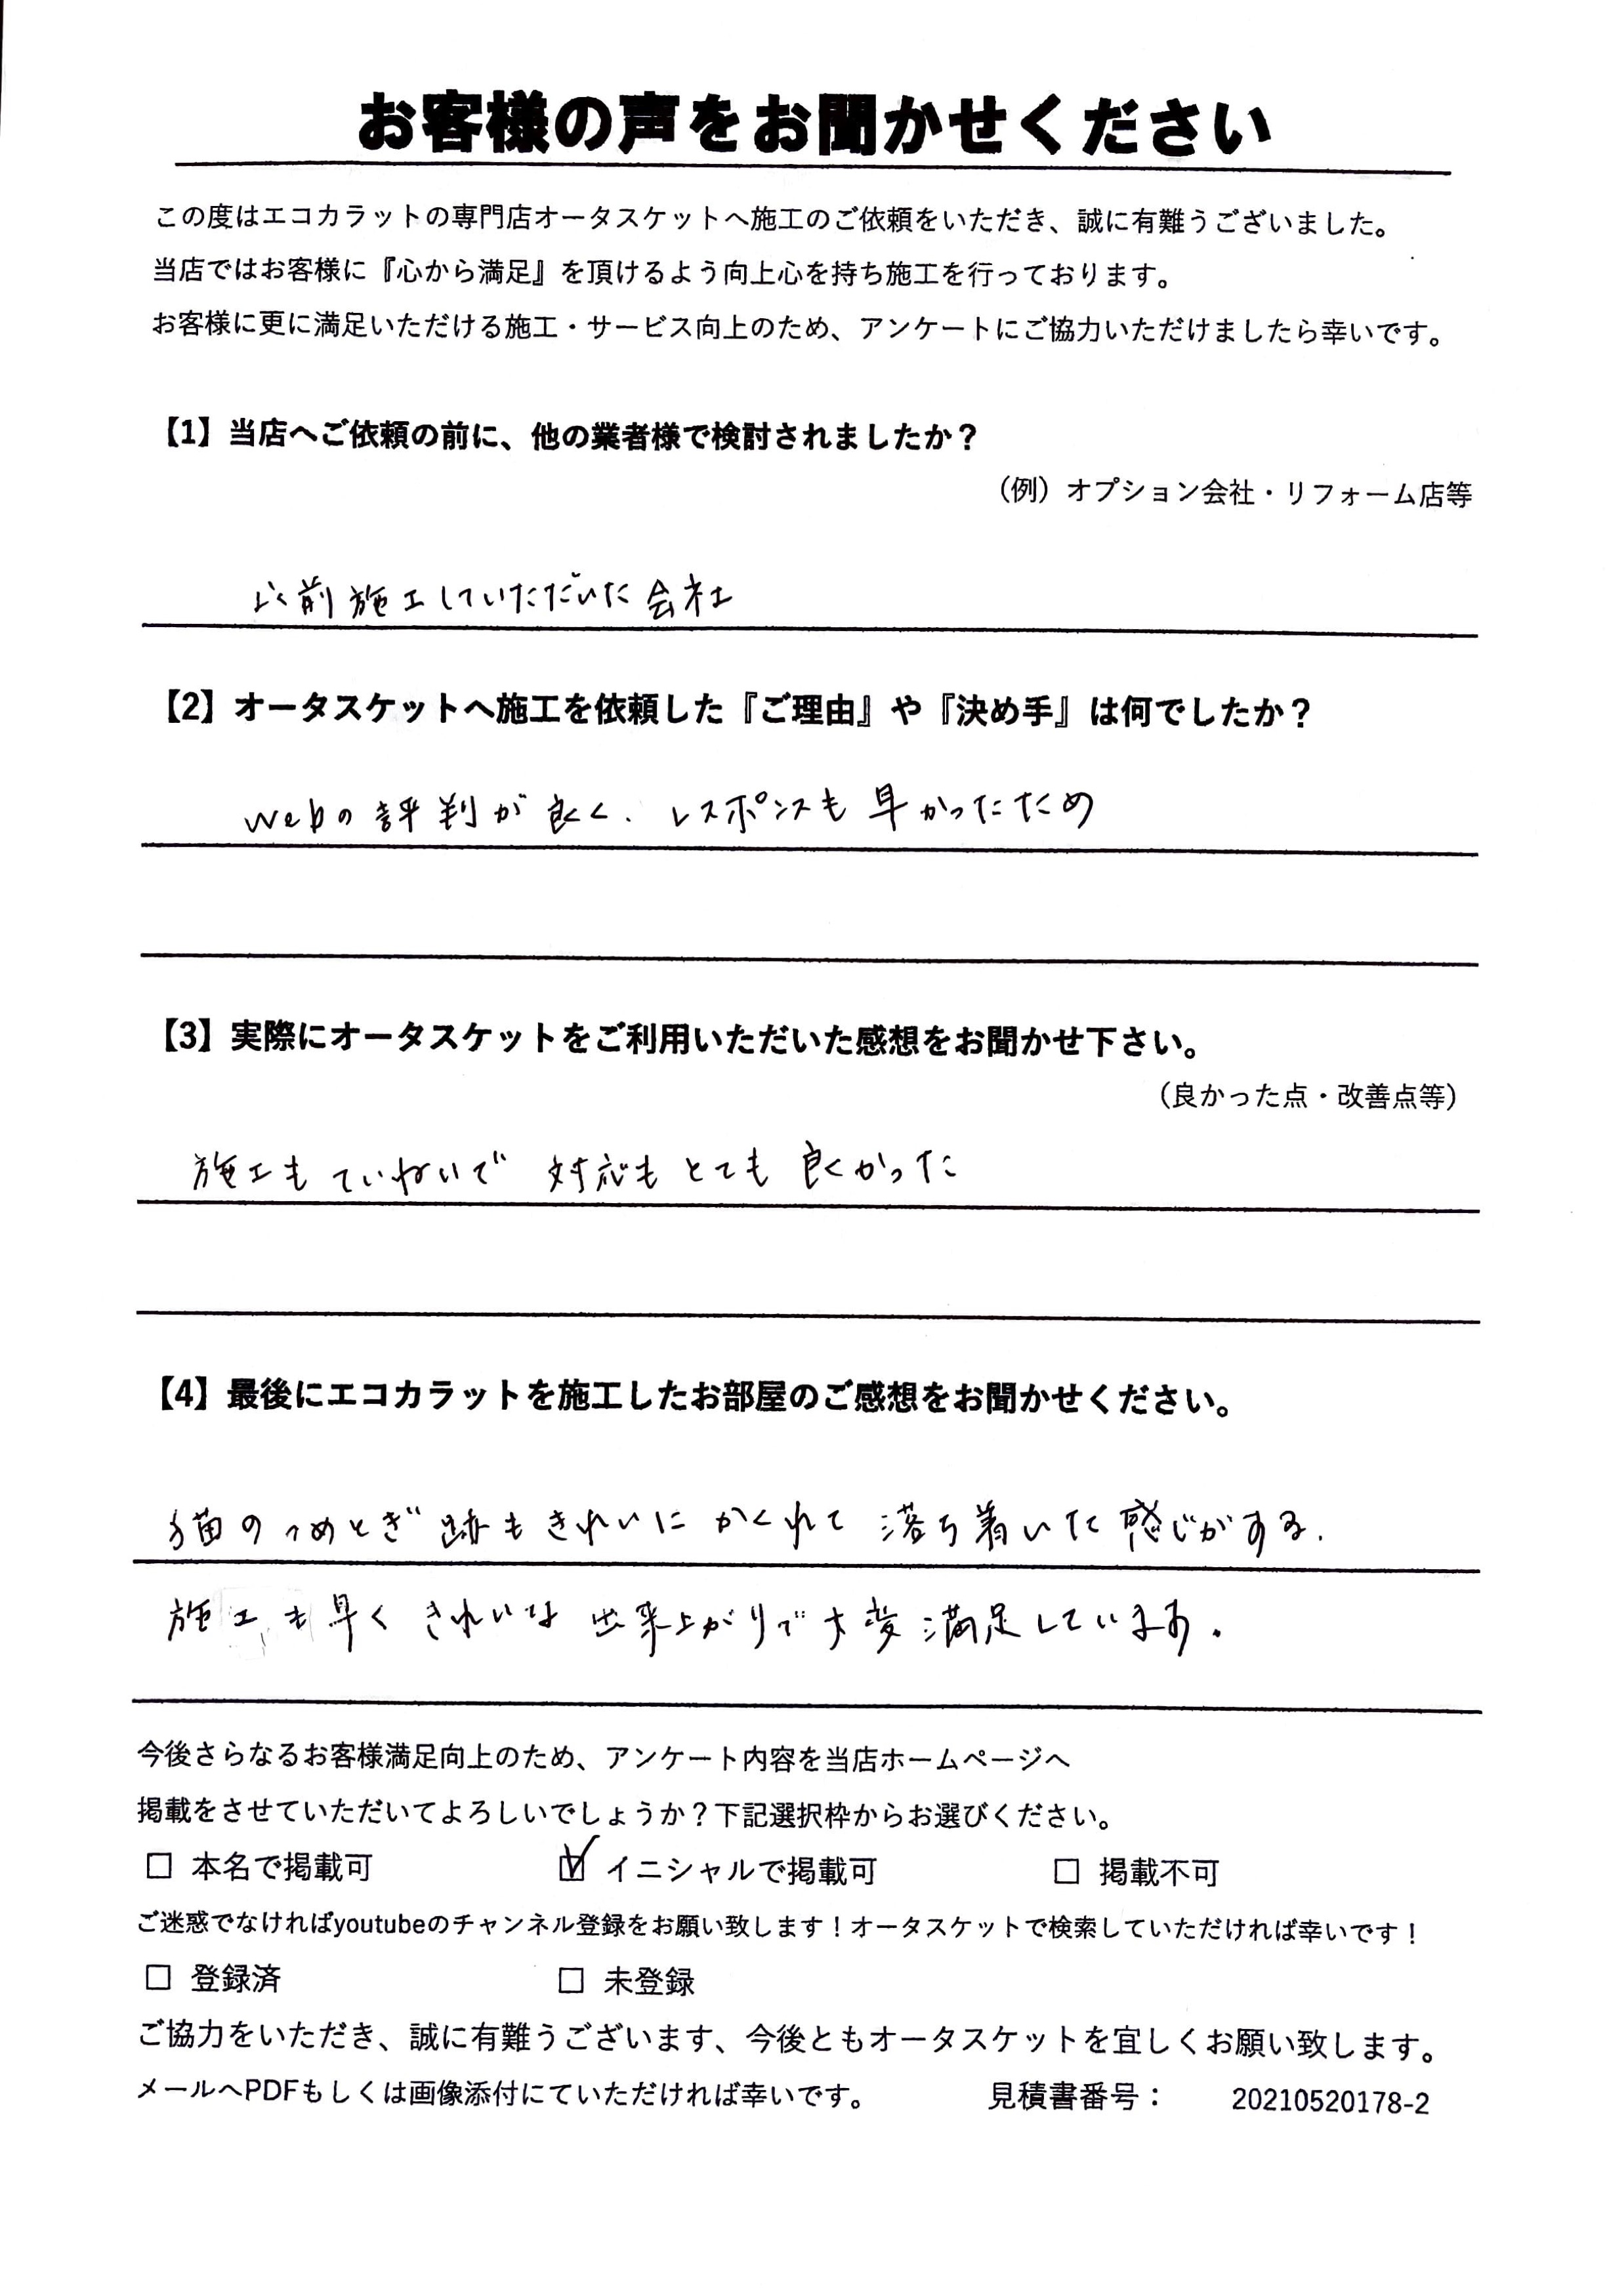 お客様の声をお聞かせください
この度はエコカラットの専門店オータスケットへ施工のご依頼をいただき、誠に有難うございました。
当店ではお客様に『心から満足』を頂けるよう向上心を持ち施工を行っております。
お客様に更に満足いただける施工・サービス向上のため、アンケートにご協力いただけましたら幸いです。
【1】当店へご依頼の前に、他の業者様で検討されましたか？
（例）オプション会社・リフォーム店等
以前施工していただいた会社
【2】オータスケットへ施工を依頼した『ご理由』や『決め手』は何でしたか？
webの評判が良く、レスポンスも早かったため
【3】実際にオータスケットをご利用いただいた感想をお聞かせ下さい。
（良かった点・改善点等）
施工もていねいで 対応もとても良かった
【4】最後にエコカラットを施工したお部屋のご感想をお聞かせください。
猫のつめとぎ跡もきれいにかくれて落ち着いた感じがする。
施工も早くきれいな出来上がりで大変満足しています。
今後さらなるお客様満足向上のため、アンケート内容を当店ホームページへ
掲載をさせていただいてよろしいでしょうか？下記選択枠からお選びください。
□ 本名で掲載可 ☑ イニシャルで掲載可 □ 掲載不可
ご迷惑でなければyoutubeのチャンネル登録をお願い致します！オータスケットで検索していただければ幸いです！
□ 登録済 □ 未登録
ご協力をいただき、誠に有難うございます、今後ともオータスケットを宜しくお願い致します。
メールへPDFもしくは画像添付にていただければ幸いです。 見積書番号： 20210520178-2